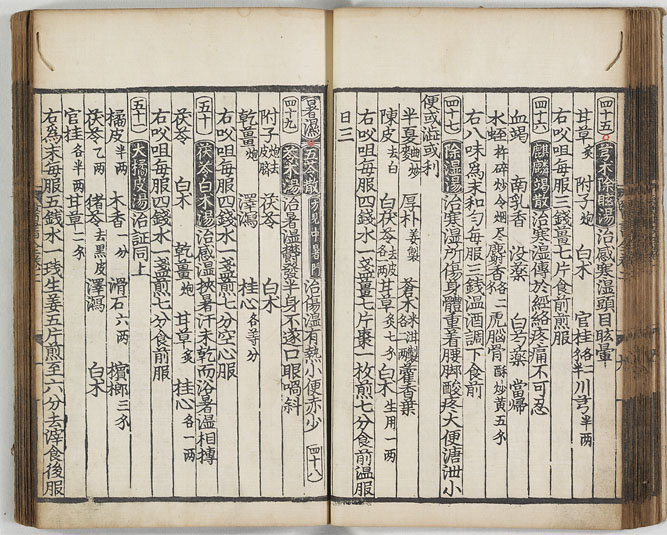 四十五 芎朮除眩湯 治感寒濕頭目眩暈
甘草 炙 附子 炮 白朮 官桂 川芎 半兩
右㕮咀每服三錢薑七片食前煎服
四十六 麒麟竭散 治寒濕傳於經絡疼痛不可忍
血竭 南乳香 沒藥 白芍藥 當歸
水蛭 杵碎炒令烟尽 麝香 各二 虎脳骨 酥炒黄五
右八味爲末和勻每服三錢温酒調下食前
四十七 除濕湯 治寒濕所傷身體重着腰脚酸疼大便溏泄小
便或澁或利
半夏 炒 厚朴 姜製 蒼朮 米泔 藿香葉
陳皮 去白 白茯苓 去皮 甘草 炙七 白朮 生用一兩
右㕮咀每服四錢水一盞薑七片棗一枚煎七分食前温服
日三
暑濕 五苓散 方見中暑門 治傷濕有熱小便赤少 四十八
四十九 苓朮湯 治暑濕欝發半身不遂口眼喎斜
附子 炮去皮臍 茯苓 白朮
乾薑 炮 澤瀉 桂心 各等分
右㕮咀每服四錢水一盞煎七分空心服
五十 茯苓白朮湯 治感濕挾暑汗未乾而浴暑濕相搏
茯苓 白朮 乾薑 炮 甘草 炙 桂心 各一兩
右㕮咀每服四錢水一盞煎七分食前服
五十一 大橘皮湯 治証同上
橘皮 半兩 木香 一分 滑石 六兩 檳榔 三
茯苓 乙兩 猪苓 去黒皮 澤瀉 白朮
官桂 各半兩 甘草 二
右爲末每服五錢水一盞生姜五片煎至六分去滓食後服